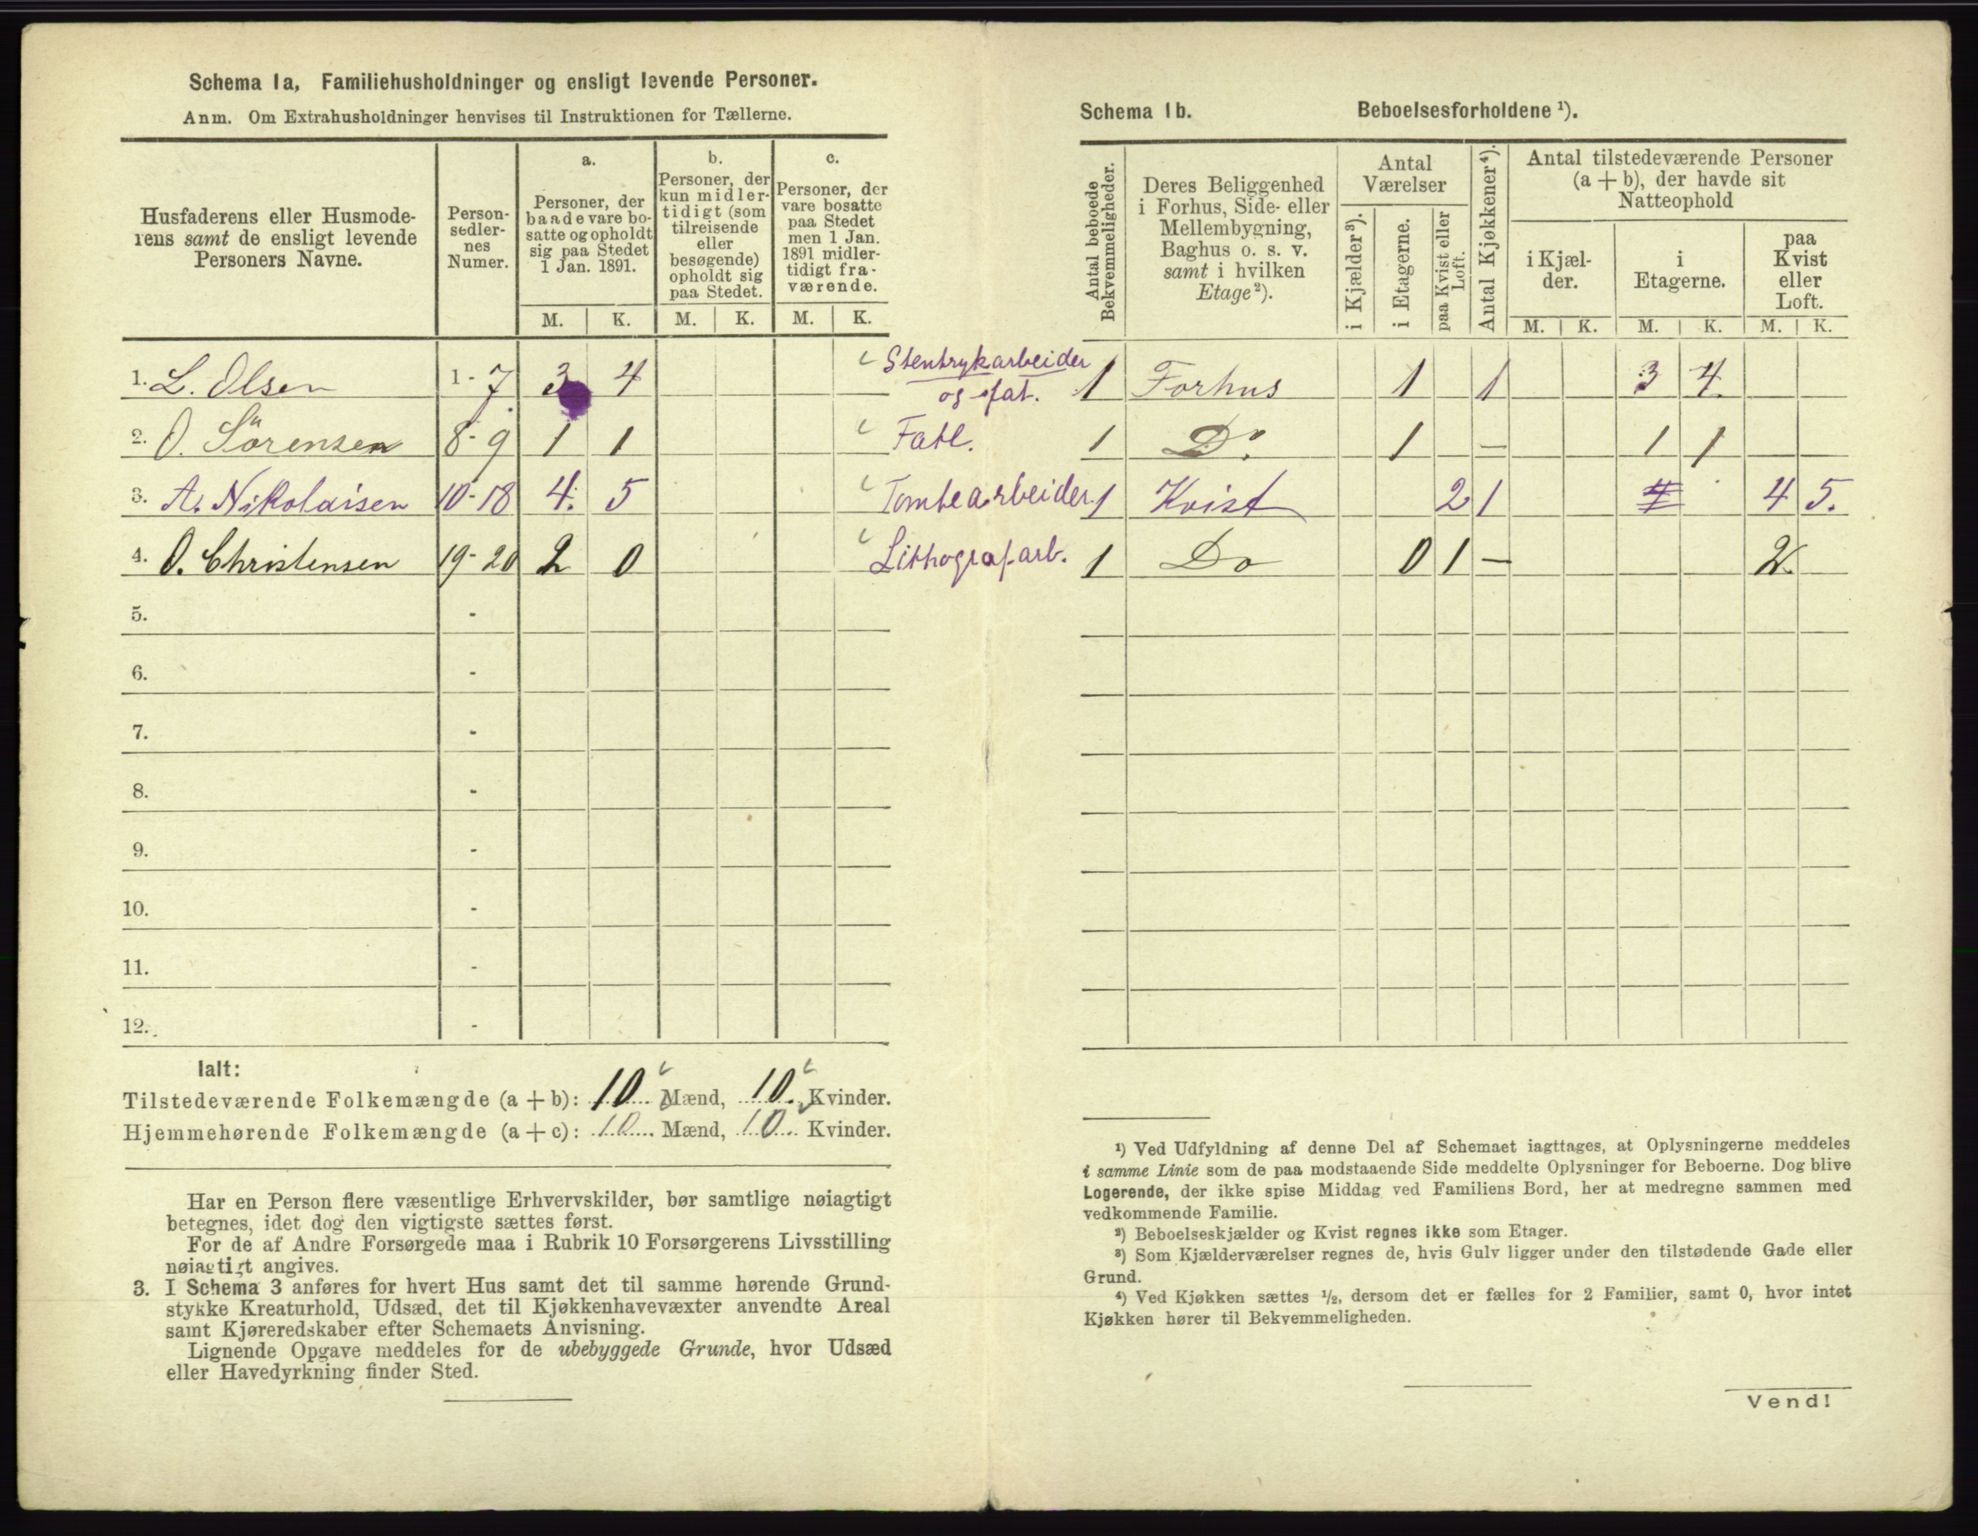 Schema 1a, Familiehusholdninger og ensligt levende Personer.
Anm. Om Extrahusholdninger henvises til Instruktionen for Tællerne.
Husfaderens eller Husmoderens samt de ensligt levende Personers Navne.
Personsedlernes Numer.
a. Personer, der baade vare bosatte og opholdt sig paa Stedet 1 Jan. 1891.
b. Personer, der kun midlertidigt (som tilreisende eller besøgende) opholdt sig paa Stedet.
c. Personer, der vare bosatte paa Stedet men 1 Jan. 1891 midlertidigt fraværende.
M. K. M. K. M. K.
1. L. Olsen 1-7 3 4 Stentrykarbeider og fat.
2. O. Sörensen 8-9 1 1 Fatl.
3. A. Nikolaisen 10-18 4. 5 Tomtearbeider.
4. O. Christensen 19-20 2 0 Lithografarb.
5. -
6. -
7. -
8. -
9. -
10. -
11. -
12. -
Ialt:
Tilstedeværende Folkemængde (a+b): 10 Mænd, 10. Kvinder.
Hjemmehørende Folkemængde (a+c): 10 Mænd, 10 Kvinder.
Har en Person flere væsentlige Erhvervskilder, bør samtlige nøiagtigt
betegnes, idet dog den vigtigste sættes først.
For de af Andre Forsørgede maa i Rubrik 10 Forsørgerens Livsstilling
nøiagtigt angives.
3. I Schema 3 anføres for hvert Hus samt det til samme hørende Grund-
stykke Kreaturhold, Udsæd, det til Kjøkkenhavevæxter anvendte Areal
samt Kjøreredskaber efter Schemaets Anvisning.
Lignende Opgave meddeles for de ubebyggede Grunde, hvor Udsæd
eller Havedyrkning finder Sted.
Schema 1b. Beboelsesforholdene ¹).
Antal beboede Bekvemmeligheder.
Deres Beliggenhed i Forhus, Side- eller Mellembygning, Baghus o. s. v. samt i hvilken Etage²).
Antal Værelser
i Kjælder³).
i Etagerne.
paa Kvist eller Loft.
Antal Kjøkkener⁴).
Antal tilstedeværende Personer (a+b), der havde sit Natteophold
i Kjælder.
i Etagerne.
paa Kvist eller Loft.
M. K. M. K. M. K.
1 Forhus 1 1 3 4.
1 Do. 1 — 1 1
1 Kvist 2 1 4 5.
1 Do 0 1 — 2.
¹) Ved Udfyldning af denne Del af Schemaet iagttages, at Oplysningerne meddeles
i samme Linie som de paa modstaaende Side meddelte Oplysninger for Beboerne. Dog blive
Logerende, der ikke spise Middag ved Familiens Bord, her at medregne sammen med
vedkommende Familie.
²) Beboelseskjælder og Kvist regnes ikke som Etager.
³) Som Kjælderværelser regnes de, hvis Gulv ligger under den tilstødende Gade eller
Grund.
⁴) Ved Kjøkken sættes ½, dersom det er fælles for 2 Familier, samt 0, hvor intet
Kjøkken hører til Bekvemmeligheden.
Vend!